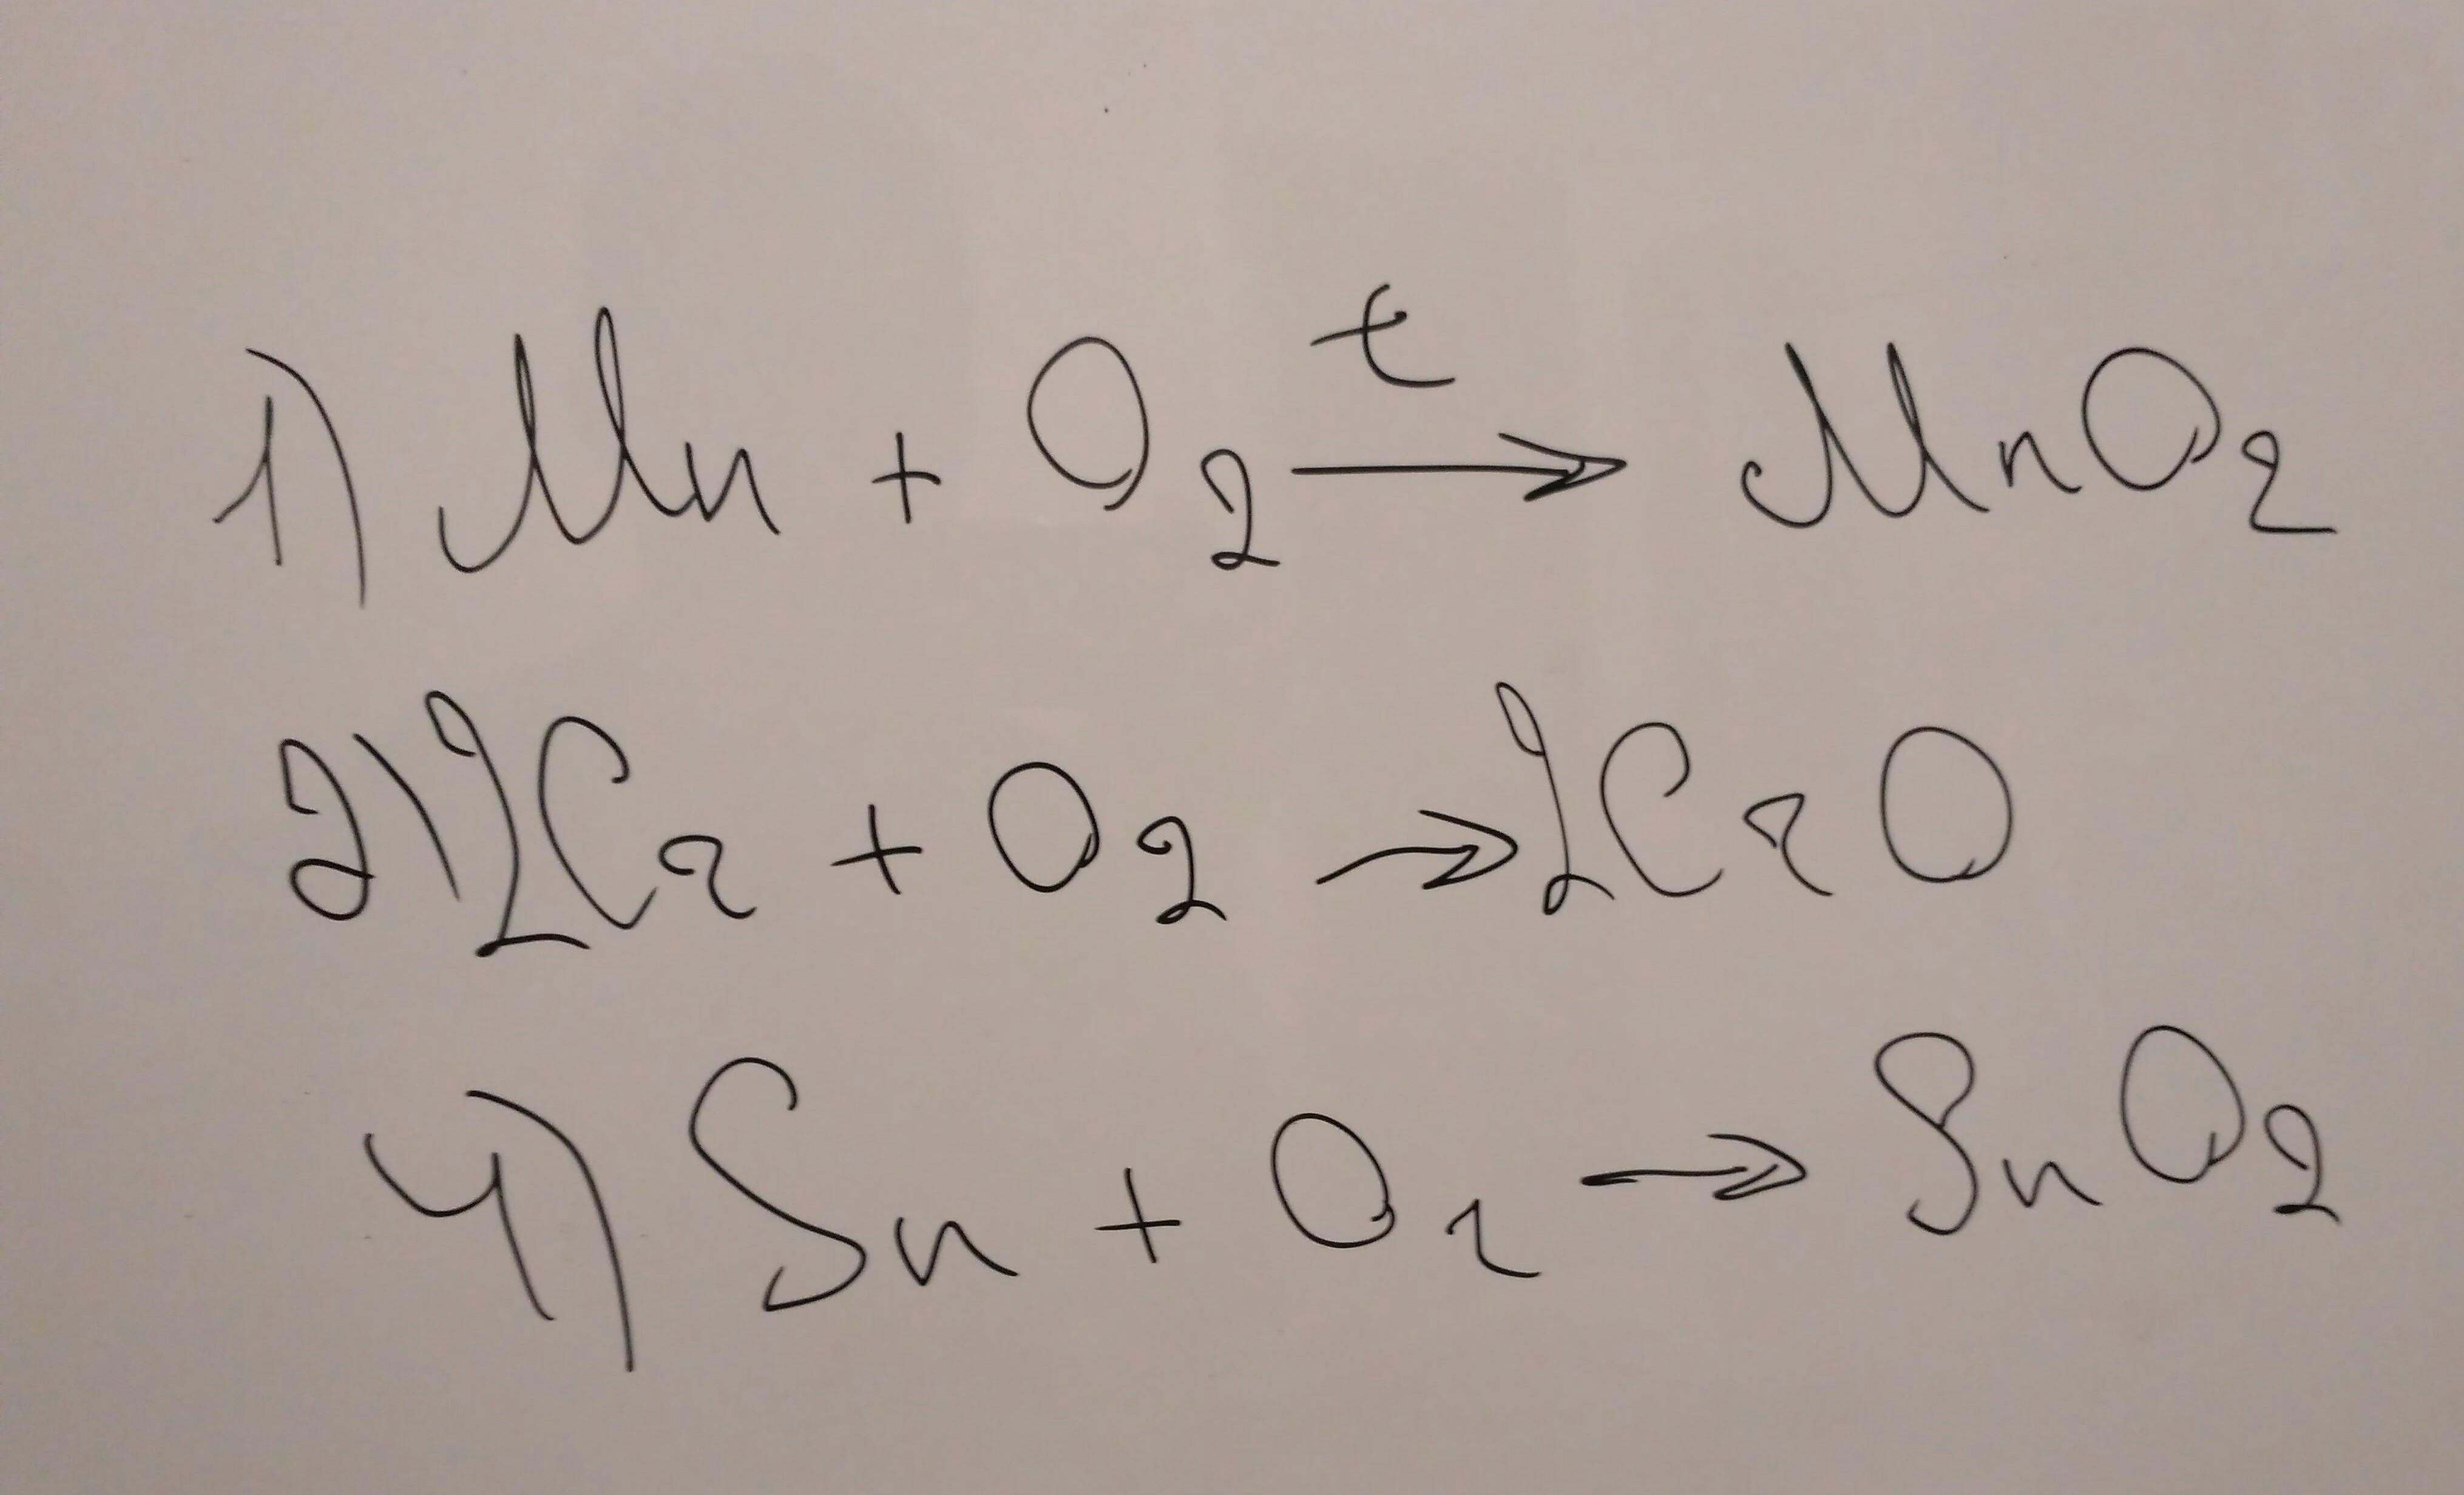 1) Mn + O₂ —t→ MnO₂
2) 2Ca + O₂ → 2CaO
4) Sn + O₂ → SnO₂